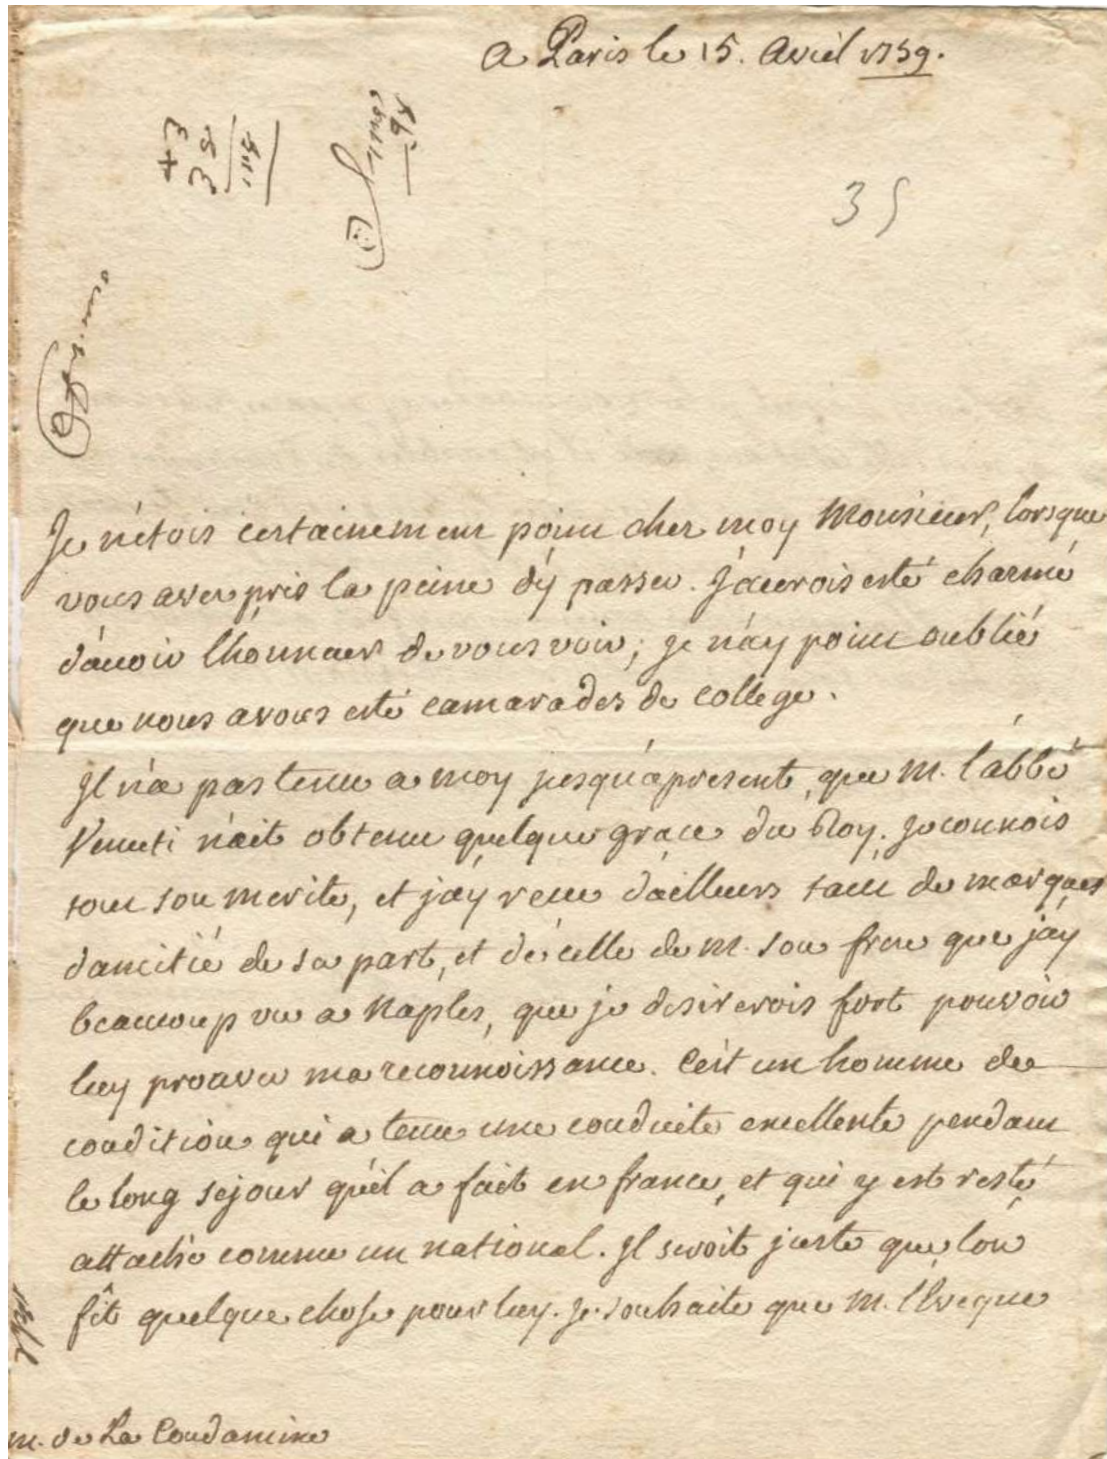 a Paris le 15. avril 1759.
35
Je n'étois certainement point chez moy Monsieur, lorsque
vous avez pris la peine d'y passer. J'aurois esté charmé
d'avoir l'honneur de vous voir; je n'ay point oublié
que nous avons esté camarades de college.
Il n'a pas tenu a moy jusqu'apresent, que M. l'abbé
Venuti n'ait obtenu quelque grace du Roy. Je connois
tout son merite, et j'ay receu d'ailleurs tant de marques
d'amitié de sa part, et de celle de M. son frere que j'ay
beaucoup vu a Naples, que je desirerois fort pouvoir
luy prouver ma reconnoissance. C'est un homme de
condition qui a tenu une conduite excellente pendant
le long sejour qu'il a fait en france, et qui y est resté
attaché comme un national. Il seroit juste que l'on
fît quelque chose pour luy. Je souhaite que M. l'Eveque
m. de La Condamine